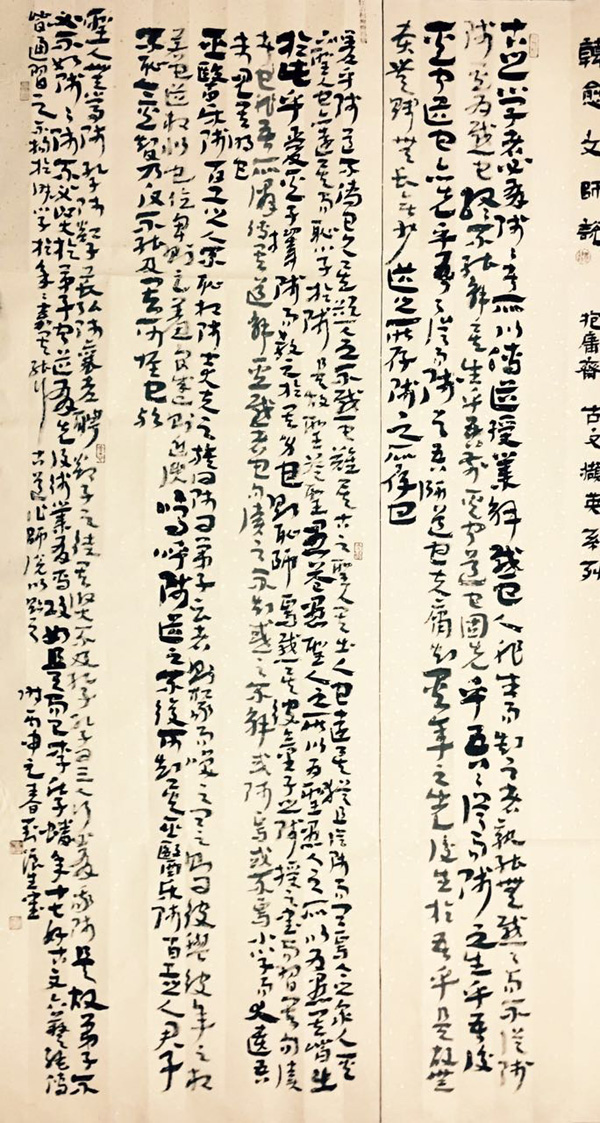 韓愈文師說 抱庸齋 古文擷英系列
古之學者必有師師者所以傳道授業解惑也人非生而知之者孰能無惑惑而不從師
其為惑也終不能解矣生乎吾前其聞道也固先乎吾吾從而師之生乎吾後
其聞道也亦先乎吾吾從而師之吾師道也夫庸知其年之先後生於吾乎是故無
貴無賤無長無少道之所存師之所存也
嗟乎師道之不傳也久矣欲人之無惑也難矣古之聖人其出人也遠矣猶且從師而問焉今之眾人其
下聖人也亦遠矣而恥學於師是故聖益聖愚益愚聖人之所以為聖愚人之所以為愚其皆出
於此乎愛其子擇師而教之於其身也則恥師焉惑矣彼童子之師授之書而習其句讀
者也非吾所謂傳其道解其惑者也句讀之不知惑之不解或師焉或不焉小學而大遺吾
未見其明也
巫醫樂師百工之人不恥相師士大夫之族曰師曰弟子云者則群聚而笑之問之則曰彼與彼年之相
若也道相似也位卑則足羞官盛則近諛嗚呼師道之不復可知矣巫醫樂師百工之人君子
不恥今其智乃反不能及其可怪也歟
聖人無常師孔子師郯子萇弘師襄老聃郯子之徒其賢不及孔子孔子曰三人行必有我師是故弟子不
必不如師師不必賢於弟子聞道有先後術業有專攻如是而已李氏子蟠年十七好古文六藝經傳
皆通習之不拘於時學於余余嘉其能行古道作師說以貽之 時丙申之春